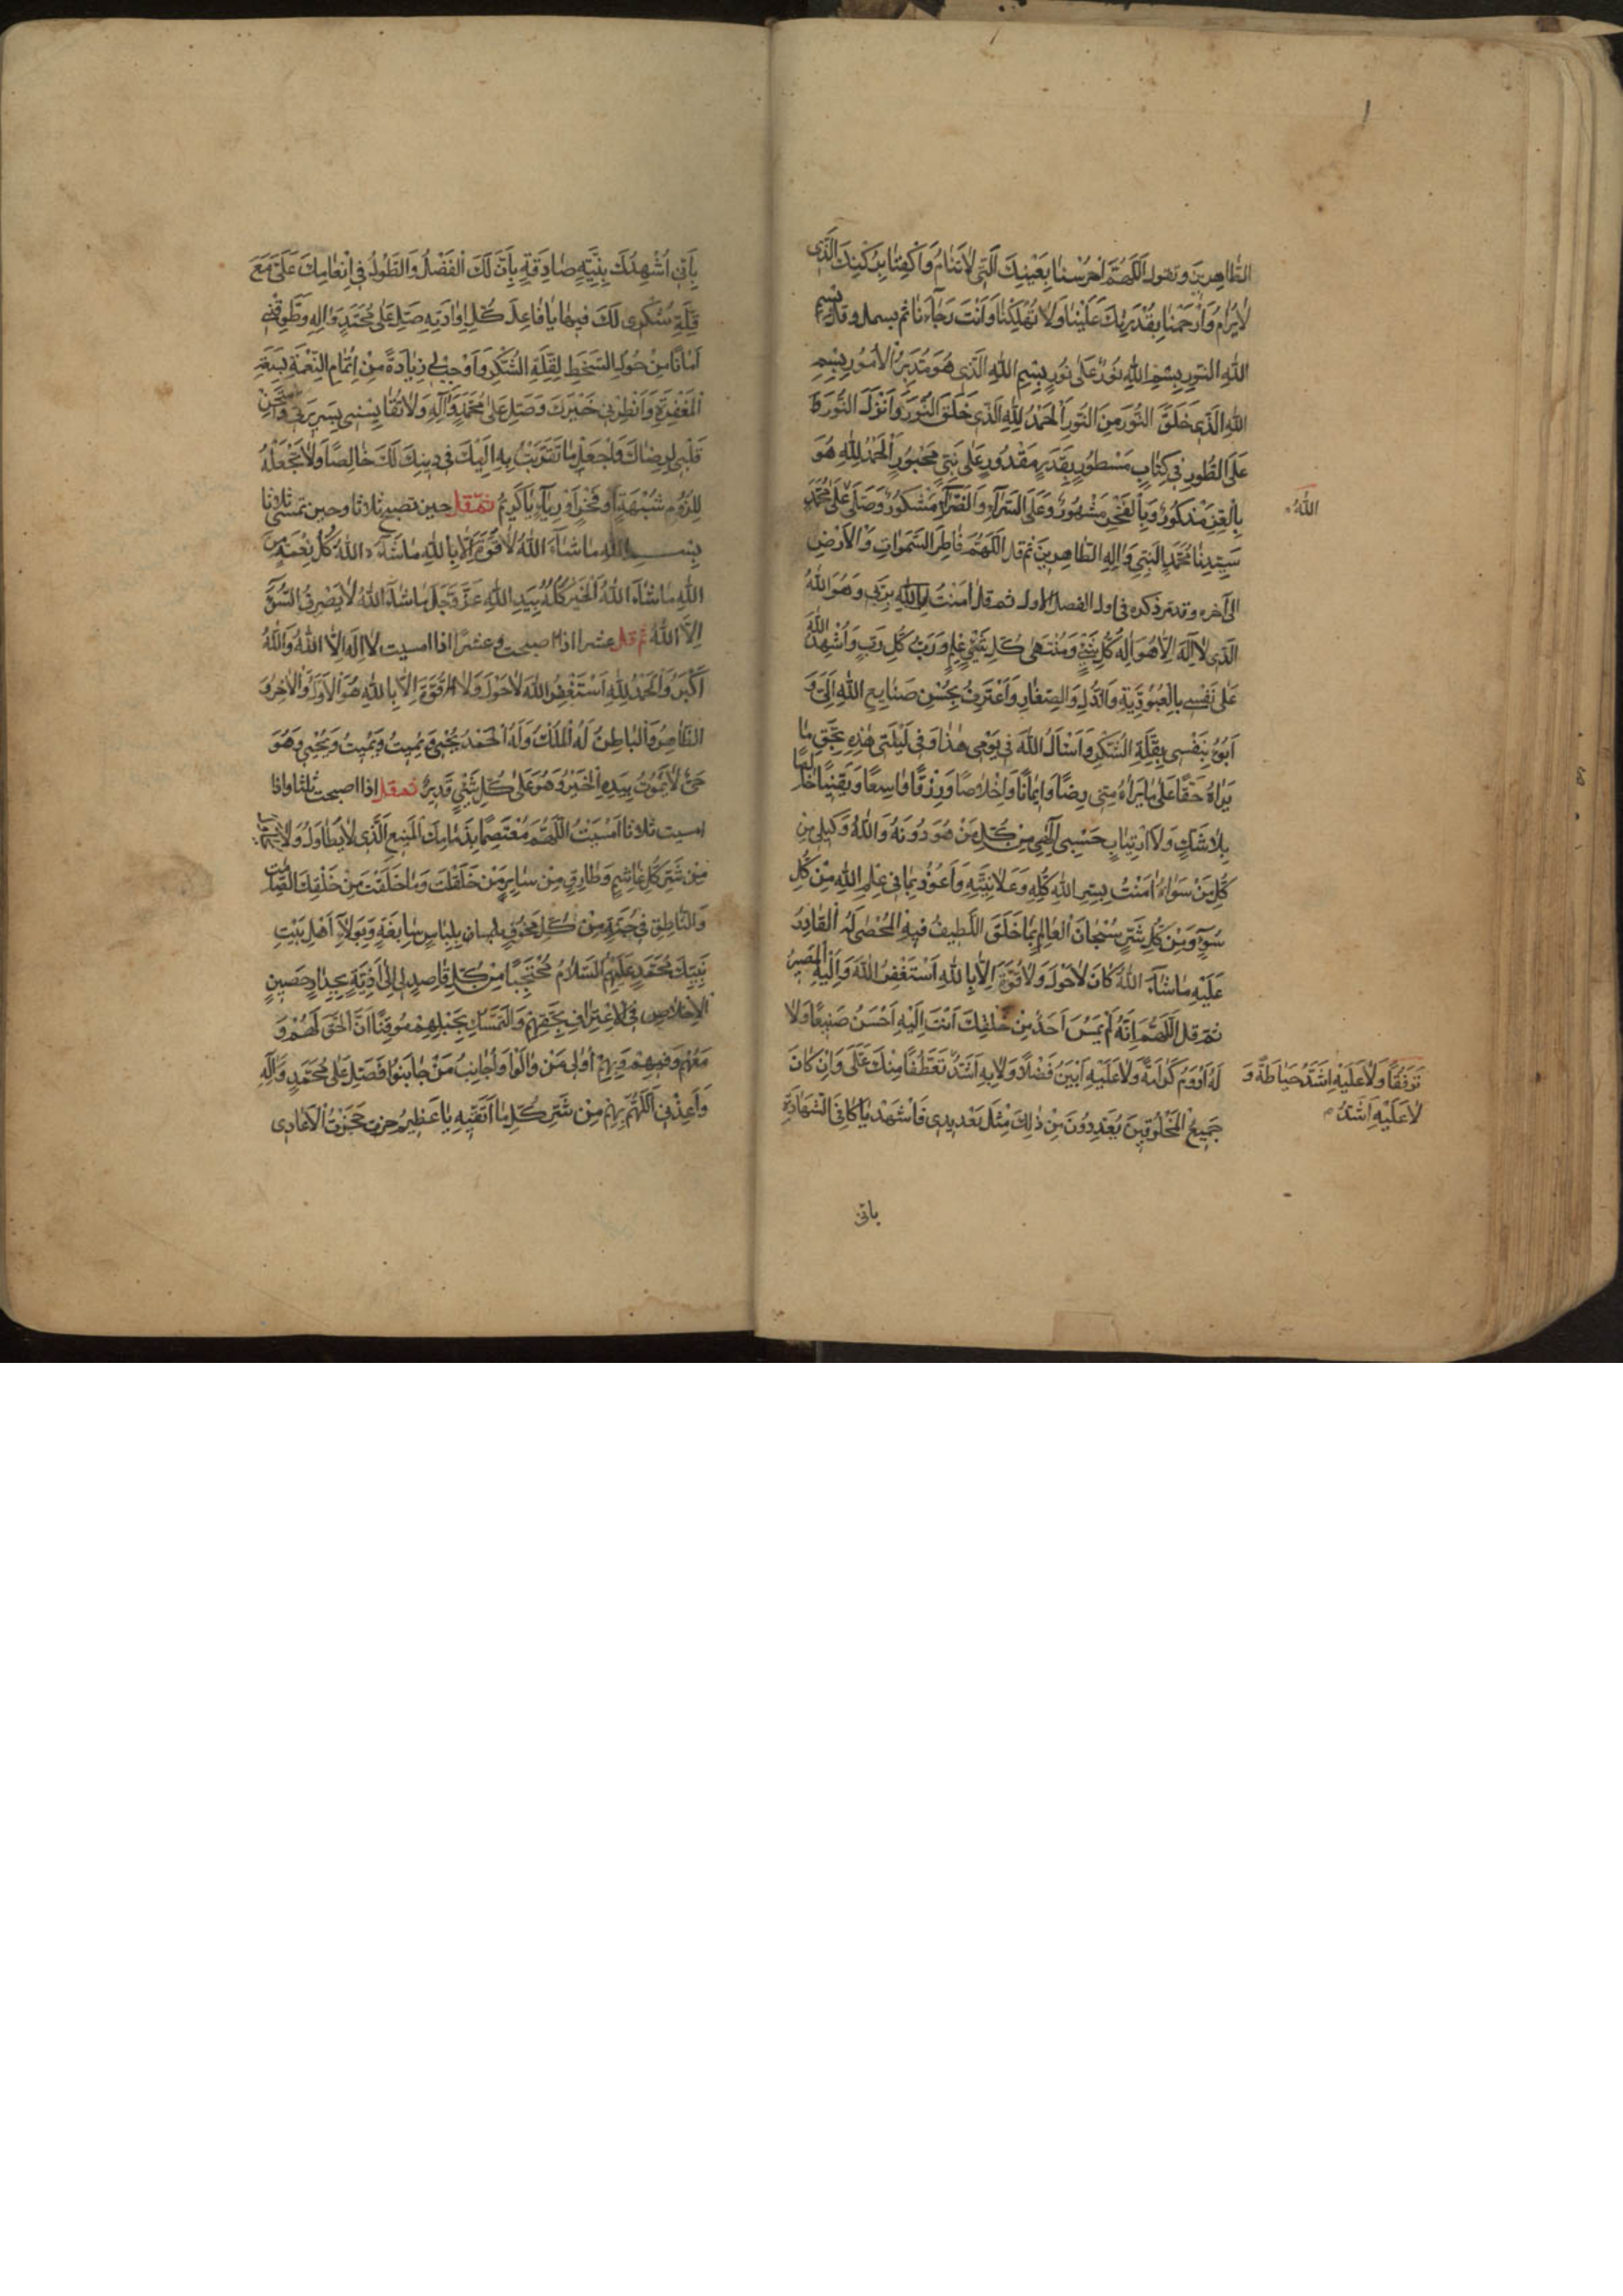 الطَّاهِرِينَ وتقول اَللّٰهُمَّ احْرُسْنَا بِعَيْنِكَ الَّتِي لَا تَنَامُ وَاكْنِفْنَا بِرُكْنِكَ الَّذِي
لَا يُرَامُ وَارْحَمْنَا بِقُدْرَتِكَ عَلَيْنَا وَلَا تُهْلِكْنَا وَاَنْتَ رَجَاؤُنَا ثم بسمل وقل بِسْمِ
اللهِ النُّورِ بِسْمِ اللهِ نُورٌ عَلَى نُورٍ بِسْمِ اللهِ الَّذِي هُوَ مُدَبِّرُ الْاُمُورِ بِسْمِ
اللهِ الَّذِي خَلَقَ النُّورَ مِنَ النُّورِ اَلْحَمْدُ لِلّٰهِ الَّذِي خَلَقَ النُّورَ وَاَنْزَلَ النُّورَ
عَلَى الطُّورِ فِي كِتَابٍ مَسْطُورٍ بِقَدَرٍ مَقْدُورٍ عَلَى نَبِيٍّ مَحْبُورٍ اَلْحَمْدُ لِلّٰهِ هُوَ
بِالْعِزِّ مَذْكُورٌ وَبِالْفَخْرِ مَشْهُورٌ وَعَلَى السَّرَّاءِ وَالضَّرَّاءِ مَشْكُورٌ وَصَلَّى عَلَى مُحَمَّدٍ
اللهُ
سَيِّدِنَا مُحَمَّدٍ النَّبِيِّ وَاٰلِهِ الطَّاهِرِينَ ثم قل اَللّٰهُمَّ فَاطِرَ السَّمٰوَاتِ وَالْاَرْضِ
الى آخره وقد مر ذكره فى اول الفصل الاول ثم قل اٰمَنْتُ بِاللهِ رَبِّي وَهُوَ اللهُ
الَّذِي لَا اِلٰهَ اِلَّا هُوَ اِلٰهُ كُلِّ شَيْءٍ وَمُنْتَهَى كُلِّ عِلْمٍ وَرَبُّ كُلِّ رَبٍّ وَاُشْهِدُ اللهَ
عَلَى نَفْسِي بِالْعُبُودِيَّةِ وَالذُّلِّ وَالصَّغَارِ وَاَعْتَرِفُ بِحُسْنِ صَنَايِعِ اللهِ اِلَيَّ وَ
اَبُوءُ بِنَفْسِي بِقِلَّةِ الشُّكْرِ وَاَسْاَلُ اللهَ فِي يَوْمِي هٰذَا وَفِي لَيْلَتِي هٰذِهِ بِحَقِّ مَا
يَرَاهُ حَقًّا عَلَى مَا يَرَاهُ مِنِّي رِضًا وَاِيمَانًا وَاِخْلَاصًا وَرِزْقًا وَاسِعًا وَيَقِينًا خَالِصًا
بِلَا شَكٍّ وَلَا ارْتِيَابٍ حَسْبِي اِلٰهِي مِنْ كُلِّ مَنْ هُوَ دُونَهُ وَاللهُ وَكِيلِي مِنْ
كُلِّ مَنْ سِوَاهُ اٰمَنْتُ بِسِرِّ اللهِ كُلِّهِ وَعَلَانِيَتِهِ وَاَعُوذُ بِمَا فِي عِلْمِ اللهِ مِنْ كُلِّ
سُوءٍ وَمِنْ كُلِّ شَرٍّ سُبْحَانَ الْعَالِمِ بِمَا خَلَقَ اللَّطِيفُ فِيهِ الْمُحْصِي لَهُ الْقَادِرُ
عَلَيْهِ مَا شَاءَ اللهُ كَانَ لَا حَوْلَ وَلَا قُوَّةَ اِلَّا بِاللهِ اَسْتَغْفِرُ اللهَ وَاِلَيْهِ الْمَصِيرُ
ثم قل اَللّٰهُمَّ اِنَّهُ لَمْ يُمْسِ اَحَدٌ مِنْ خَلْقِكَ اَنْتَ اِلَيْهِ اَحْسَنُ صَنِيعًا وَلَا
لَهُ اَدْوَمُ كَرَامَةً وَلَا عَلَيْهِ اَبْيَنُ فَضْلًا وَلَا بِهِ اَشَدُّ تَعَطُّفًا مِنْكَ عَلَيَّ وَاِنْ كَانَ
تَرَفُّقًا وَلَا عَلَيْهِ اَشَدُّ حِيَاطَةً وَ
لَا عَلَيْهِ اَشَدُّ
جَمِيعُ الْمَخْلُوقِينَ يُعَدِّدُونَ مِنْ ذٰلِكَ مِثْلَ تَعْدِيدِي فَاشْهَدْ يَا كَافِيَ الشَّهَادَةِ
بانى
بِاَنِّي اُشْهِدُكَ بِنِيَّةٍ صَادِقَةٍ بِاَنَّ لَكَ الْفَضْلَ وَالطَّوْلَ فِي اِنْعَامِكَ عَلَيَّ مَعَ
قِلَّةِ شُكْرِي لَكَ فِيهَا يَا فَاعِلَ كُلِّ اِرَادَتِهِ صَلِّ عَلَى مُحَمَّدٍ وَاٰلِهِ وَطَوِّقْنِي
اَمَانًا مِنْ حُلُولِ السَّخَطِ لِقِلَّةِ الشُّكْرِ وَاَوْجِبْ لِي زِيَادَةً مِنْ اِتْمَامِ النِّعْمَةِ بِسَعَةِ
الْمَغْفِرَةِ وَاَنْظِرْنِي خَيْرَكَ وَصَلِّ عَلَى مُحَمَّدٍ وَاٰلِهِ وَلَا تُقَايِسْنِي بِسَرِيرَتِي وَامْتَحِنْ
قَلْبِي لِرِضَاكَ وَاجْعَلْ مَا تَقَرَّبْتُ بِهِ اِلَيْكَ فِي دِينِكَ لَكَ خَالِصًا وَلَا تَجْعَلْهُ
لِلُزُومِ شُبْهَةٍ اَوْ فَخْرٍ اَوْ رِيَاءٍ يَا كَرِيمُ ثم قل حين تصبح ثلاثا وحين تمسى ثلاثا
بِسْمِ اللهِ مَا شَاءَ اللهُ لَا قُوَّةَ اِلَّا بِاللهِ مَا شَاءَ اللهُ كُلُّ نِعْمَةٍ مِنَ
اللهِ مَا شَاءَ اللهُ الْخَيْرُ كُلُّهُ بِيَدِ اللهِ عَزَّ وَجَلَّ مَا شَاءَ اللهُ لَا يَصْرِفُ السُّوءَ
اِلَّا اللهُ ثم قل عشرا اذا اصبحت وعشرا اذا امسيت لَا اِلٰهَ اِلَّا اللهُ وَاللهُ
اَكْبَرُ وَالْحَمْدُ لِلّٰهِ اَسْتَغْفِرُ اللهَ لَا حَوْلَ وَلَا قُوَّةَ اِلَّا بِاللهِ هُوَ الْاَوَّلُ وَالْاٰخِرُ وَ
الظَّاهِرُ وَالْبَاطِنُ لَهُ الْمُلْكُ وَلَهُ الْحَمْدُ يُحْيِي وَيُمِيتُ وَيُمِيتُ وَيُحْيِي وَهُوَ
حَيٌّ لَا يَمُوتُ بِيَدِهِ الْخَيْرُ وَهُوَ عَلَى كُلِّ شَيْءٍ قَدِيرٌ ثم قل اذا اصبحت ثلثا واذا
امسيت ثلاثا اَمْسَيْتُ اللّٰهُمَّ مُعْتَصِمًا بِذِمَامِكَ الْمَنِيعِ الَّذِي لَا يُطَاوَلُ وَلَا
مِنْ شَرِّ كُلِّ غَاشِمٍ وَطَارِقٍ مِنْ سَايِرِ مَنْ خَلَقْتَ وَمَا خَلَقْتَ مِنْ خَلْقِكَ الصَّامِتِ
وَالنَّاطِقِ فِي جُنَّةٍ مِنْ كُلِّ مَخُوفٍ بِلِبَاسٍ سَابِغَةٍ وَبِوَلَاءِ اَهْلِ بَيْتِ
نَبِيِّكَ مُحَمَّدٍ عَلَيْهِمُ السَّلَامُ مُحْتَجِبًا مِنْ كُلِّ قَاصِدٍ لِي اِلَى اَذِيَّةٍ بِجِدَارٍ حَصِينٍ
الْاِخْلَاصِ فِي الْاِعْتِرَافِ بِحَقِّهِمْ وَالتَّمَسُّكِ بِحَبْلِهِمْ مُوقِنًا اَنَّ الْحَقَّ لَهُمْ وَ
مَعَهُمْ وَفِيهِمْ وَبِهِمْ اُوَالِي مَنْ وَالَوْا وَاُجَانِبُ مَنْ جَانَبُوا فَصَلِّ عَلَى مُحَمَّدٍ وَاٰلِهِ
وَاَعِذْنِي اللّٰهُمَّ بِهِمْ مِنْ شَرِّ كُلِّ مَا اَتَّقِيهِ يَا عَظِيمُ حَجَزْتُ الْاَعَادِي